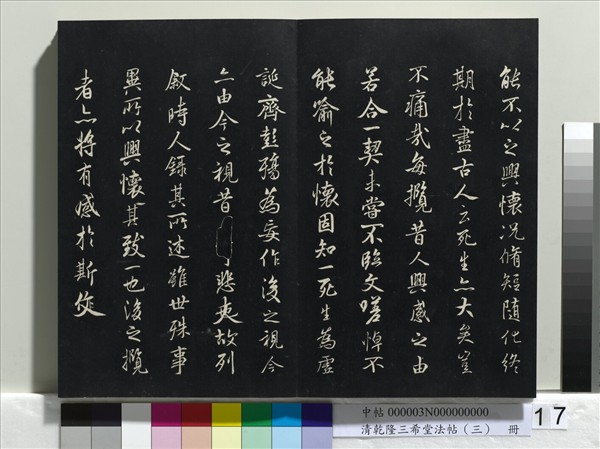 能不以之興懷況脩短隨化終
期於盡古人云死生亦大矣豈
不痛哉每攬昔人興感之由
若合一契未嘗不臨文嗟悼不
能喻之於懷固知一死生為虛
誕齊彭殤為妄作後之視今
亦由今之視昔悲夫故列
敘時人錄其所述雖世殊事
異所以興懷其致一也後之攬
者亦將有感於斯文
中帖 000003N000000000
清乾隆三希堂法帖（三） 冊
17